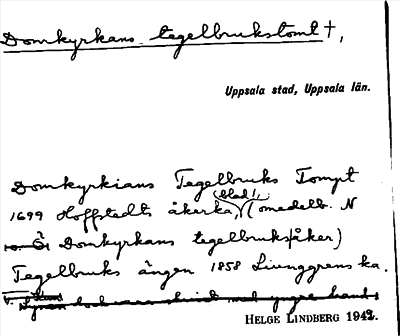 Domkyrkans tegelbrukstomt †,
Uppsala stad, Uppsala län.
Domkyrkians Tegelbruks Tompt
(blad 1,
1699 Hoffstedts åkerka, (omedelb. N
o. Ö. Domkyrkans tegelbruksåker)
Tegelbruks ängen 1858 Ljunggrens ka.
HELGE LINDBERG 1942.